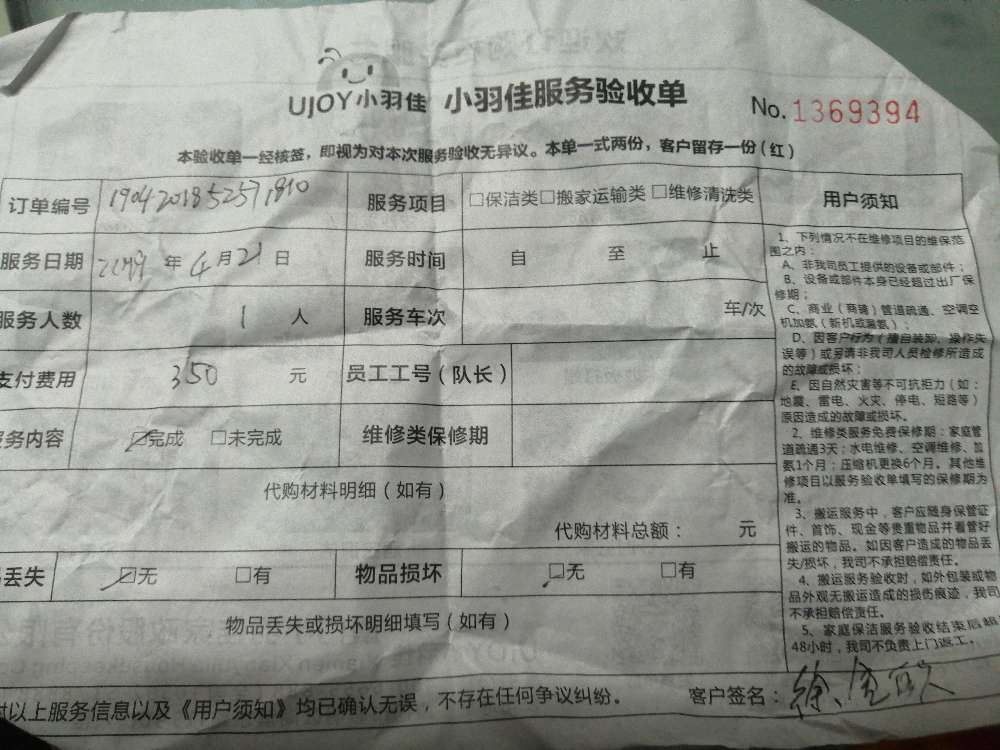 UJOY小羽佳 小羽佳服务验收单
No.1369394
本验收单一经核签，即视为对本次服务验收无异议。本单一式两份，客户留存一份(红)
订单编号 1904201852571810 服务项目 □保洁类□搬家运输类 □维修清洗类
服务日期 2019 年 4 月 21 日 服务时间 自 至 止
服务人数 1 人 服务车次 车/次
支付费用 350 元 员工工号（队长）
服务内容 ☑完成 □未完成 维修类保修期
代购材料明细（如有）
代购材料总额： 元
丢失 ☑无 □有 物品损坏 ☑无 □有
物品丢失或损坏明细填写（如有）
对以上服务信息以及《用户须知》均已确认无误，不存在任何争议纠纷。 客户签名：徐
用户须知
1、下列情况不在维修项目的维保范
围之内：
A、非我司员工提供的设备或部件；
B、设备或部件本身已经超过出厂保
修期；
C、商业（商铺）管道疏通、空调空
机加氨（新机或漏氨）；
D、因客户行为（擅自装卸、操作失
误等）或另请非我司人员检修所造成
的故障或损坏；
E、因自然灾害等不可抗拒力（如：
地震、雷电、火灾、停电、短路等）
原因造成的故障或损坏。
2、维修类服务免费保修期：家庭管
道疏通3天；水电维修、空调维修、加
氨1个月；压缩机更换6个月。其他维
修项目以服务验收单填写的保修期为
准。
3、搬运服务中，客户应随身保管证
件、首饰、现金等贵重物品并看管好
搬运的物品。如因客户造成的物品丢
失/损坏，我司不承担赔偿责任。
4、搬运服务验收时，如外包装或物
品外观无搬运造成的损伤痕迹，我司
不承担赔偿责任。
5、家庭保洁服务验收结束后超
48小时，我司不负责上门返工。